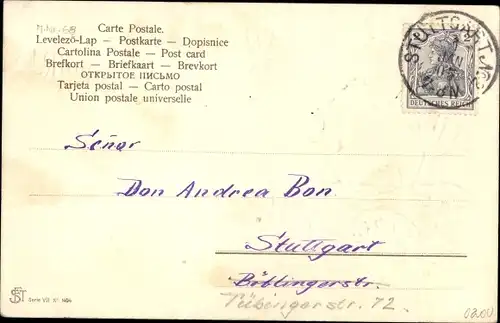 Carte Postale.
Levelező-Lap – Postkarte – Dopisnice
Cartolina Postale – Post card
Brefkort – Briefkaart – Brevkort
ОТКРЫТОЕ ПИСЬМО
Tarjeta postal – Carto postal
Union postale universelle
STUTTGART No 2
DEUTSCHES REICH
Señor
Don Andrea Bon.
Stuttgart
Böblingerstr.
Tübingerstr. 72.
Serie VII